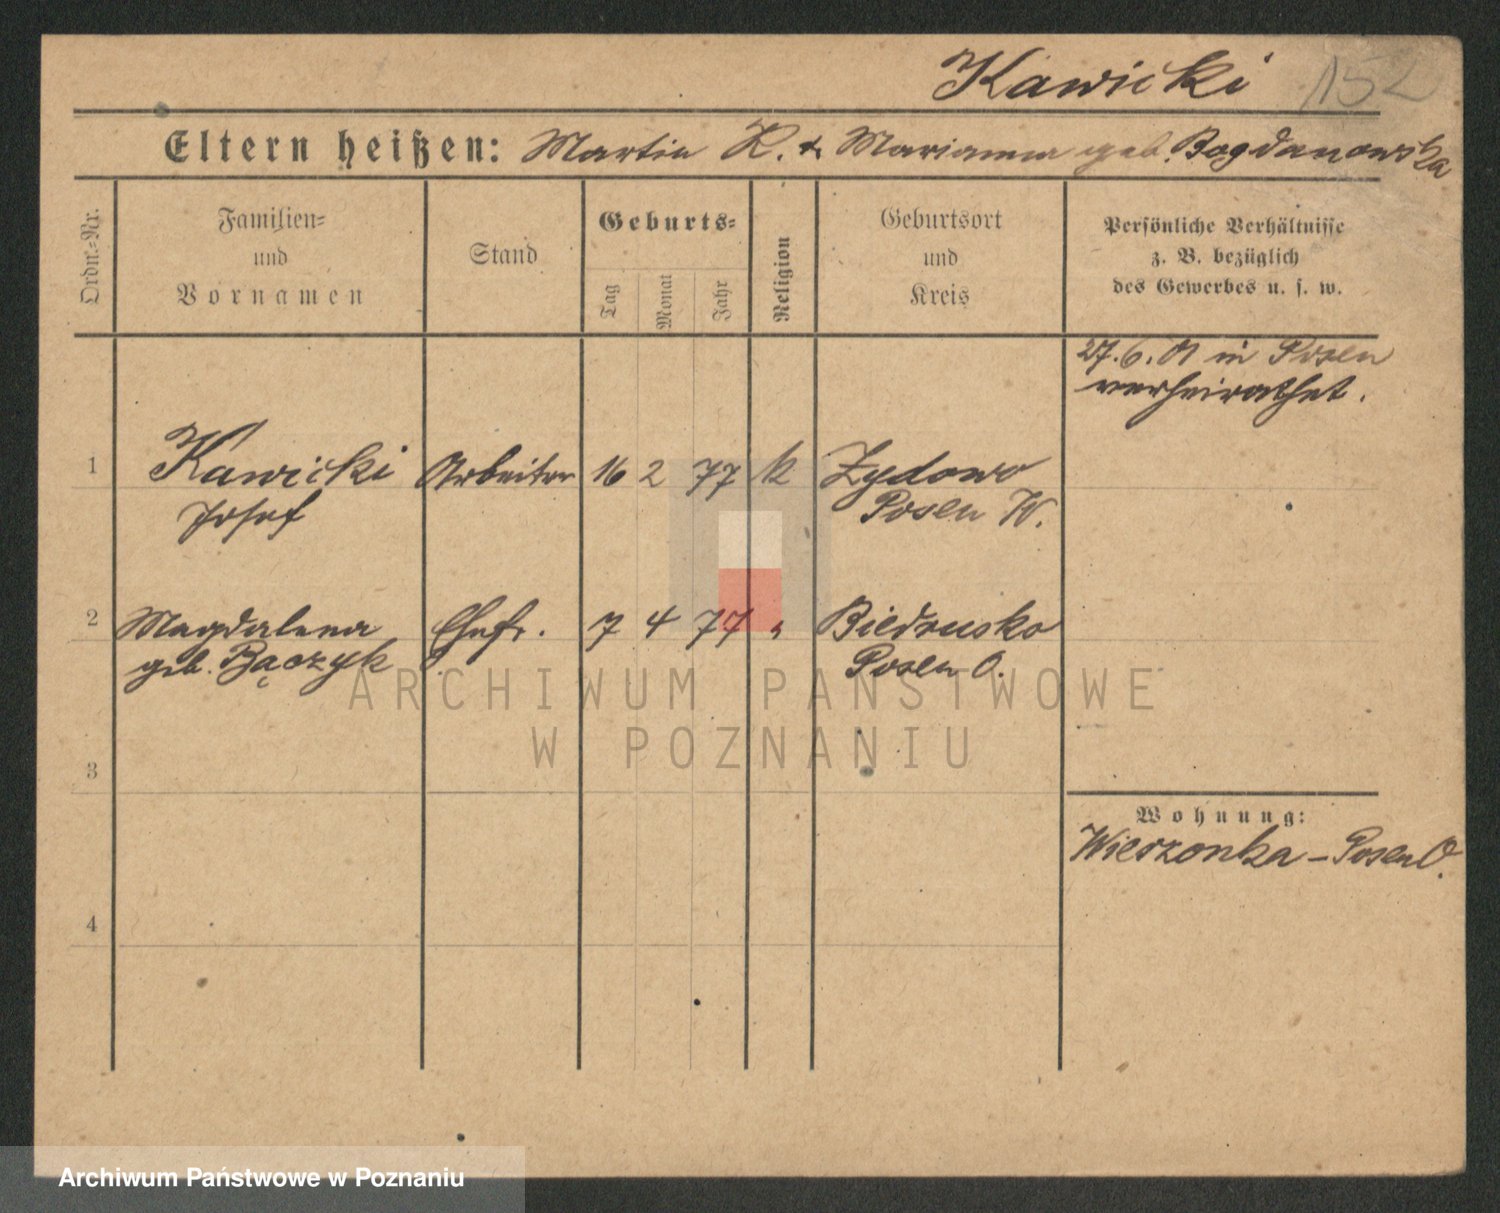 Kawicki 152
Eltern heißen: Martin K. & Marianna geb. Bogdanowska
Ordn.=Nr.
Familien=
und
Vornamen
Stand
Geburts=
Tag
Monat
Jahr
Religion
Geburtsort
und
Kreis
Persönliche Verhältnisse
z. B. bezüglich
des Gewerbes u. s. w.
27. 6. 01 in Posen
verheirathet.
1 Kawicki Arbeiter 16 2 77 k Zydowo
Josef Posen W.
2 Magdalena Ehefr. 7 4 77 " Biedrusko
geb. Bączyk Posen O.
ARCHIWUM PAŃSTWOWE
W POZNANIU
3
Wohnung:
Wierzonka - Posen O.
4
Archiwum Państwowe w Poznaniu